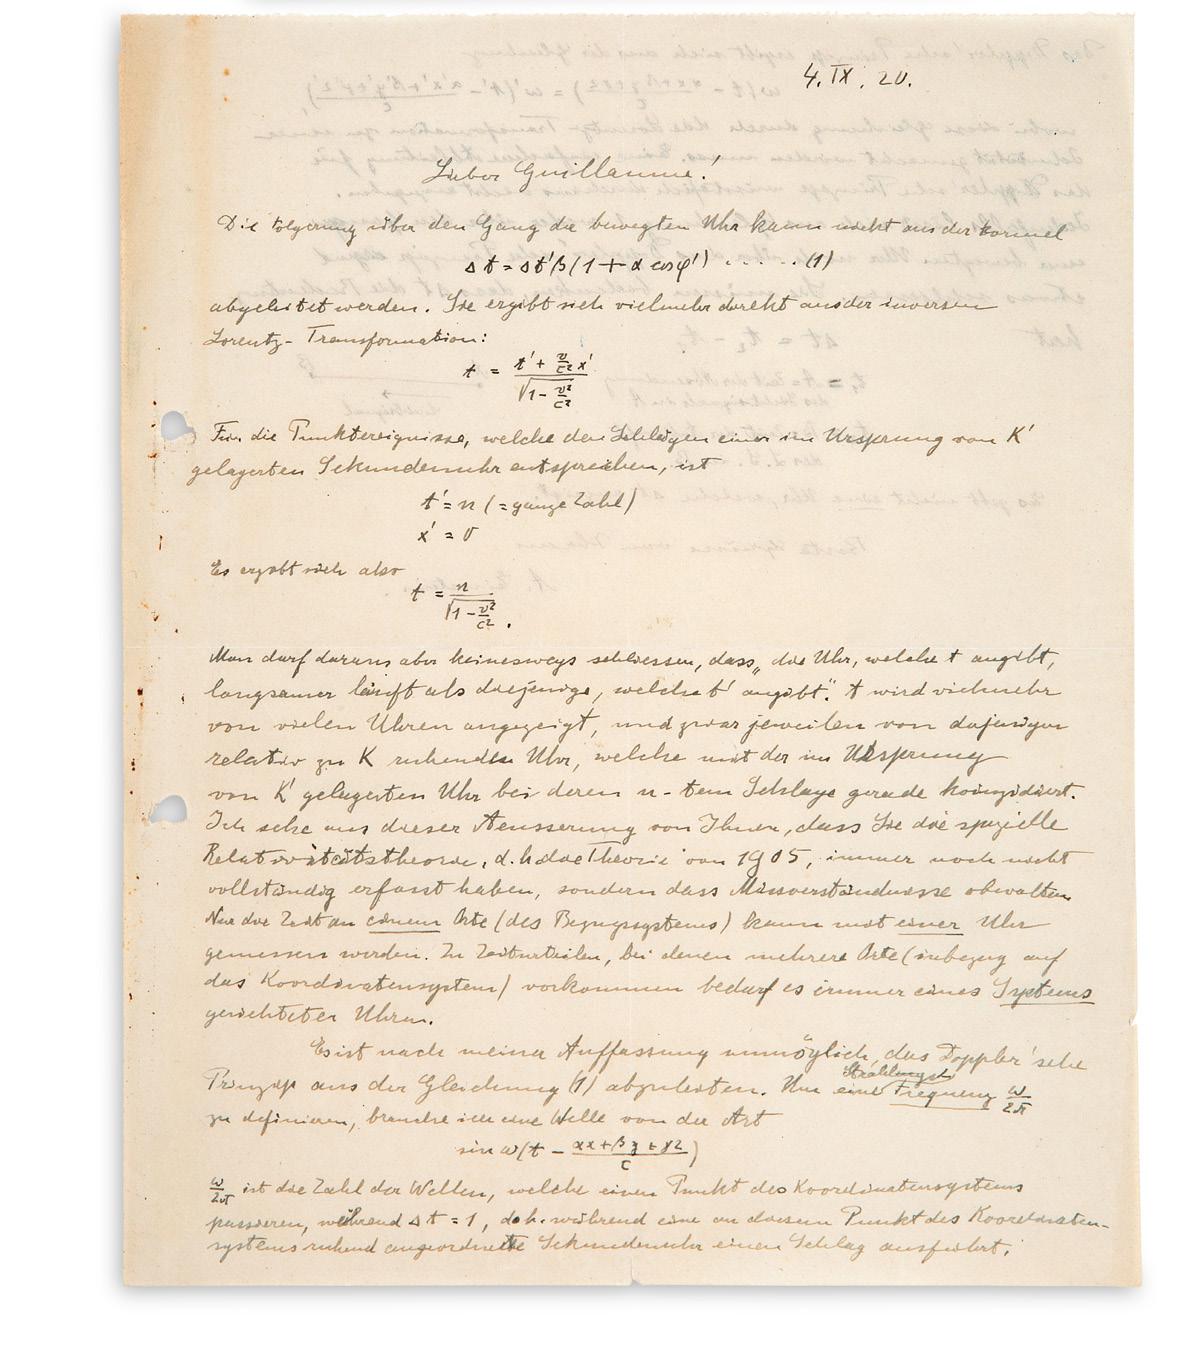 4. IX. 20.
Lieber Guillaume!
Die Folgerung über den Gang der bewegten Uhr kann nicht aus der Formel
Δt = Δt'β(1 + α cosφ') . . . . . (1)
abgeleitet werden. Sie ergibt sich vielmehr direkt aus der inversen
Lorentz-Transformation:
t = (t' + v/c² x') / √(1 - v²/c²)
Für die Punktereignisse, welche den Schlägen einer im Ursprung von K'
gelagerten Sekundenuhr entsprechen, ist
t' = n (= ganze Zahl)
x' = 0
Es ergibt sich also
t = n / √(1 - v²/c²).
Man darf daraus aber keineswegs schliessen, dass „die Uhr, welche t angibt,
langsamer läuft als diejenige, welche t' angibt". t wird vielmehr
von vielen Uhren angezeigt, und zwar jeweilen von derjenigen
relativ zu K ruhenden Uhr, welche mit der im Ursprung
von K' gelagerten Uhr bei deren n-tem Schlage gerade koinzidiert.
Ich sehe aus dieser Aeusserung von Ihnen, dass Sie die spezielle
Relativitätstheorie, d. h. die Theorie von 1905, immer noch nicht
vollständig erfasst haben, sondern dass Missverständnisse obwalten.
Nur die Zeit an einem Orte (des Bezugssystems) kann mit einer Uhr
gemessen werden. Zu Zeiturteilen, bei denen mehrere Orte (inbezug auf
das Koordinatensystem) vorkommen bedarf es immer eines Systems
gerichteter Uhren.
Es ist nach meiner Auffassung unmöglich, das Doppler'sche
Prinzip aus der Gleichung (1) abzuleiten. Um eine Strahlungs-Frequenz ω/2π
zu definieren, brauche ich eine Welle von der Art
sin ω(t - (αx + βy + γz)/c)
ω/2π ist die Zahl der Wellen, welche einen Punkt des Koordinatensystems
passieren, während Δt = 1, d. h. während eine an diesem Punkt des Koordinaten-
systems ruhend angeordnete Sekundenuhr einen Schlag ausführt.